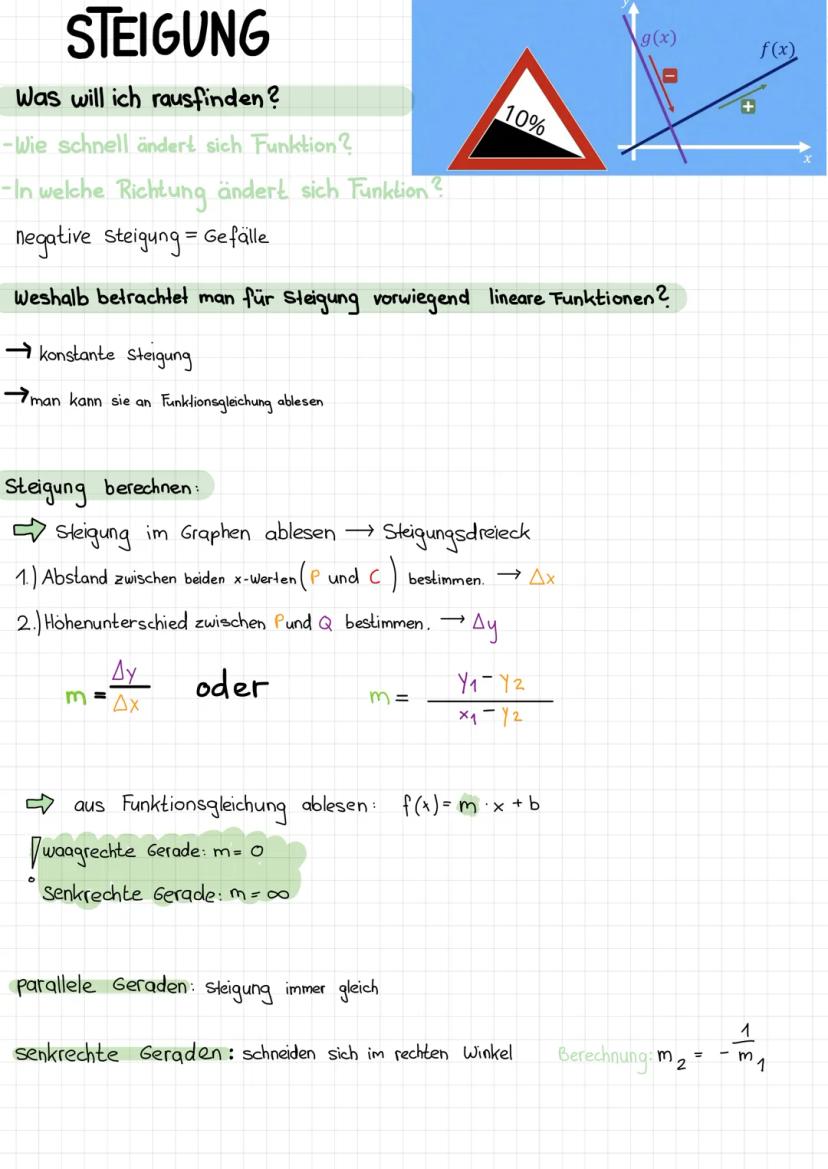 STEIGUNG
y
g(x)
f(x)
−
+
10%
x
Was will ich rausfinden?
-Wie schnell ändert sich Funktion?
-In welche Richtung ändert sich Funktion?
negative Steigung = Gefälle
Weshalb betrachtet man für Steigung vorwiegend lineare Funktionen?
→ konstante Steigung
→ man kann sie an Funktionsgleichung ablesen
Steigung berechnen:
⇨ Steigung im Graphen ablesen → Steigungsdreieck
1.) Abstand zwischen beiden x-Werten (P und C) bestimmen. → Δx
2.) Höhenunterschied zwischen P und Q bestimmen. → Δy
m = Δy/Δx oder m = (y₁ - y₂)/(x₁ - y₂)
⇨ aus Funktionsgleichung ablesen: f(x) = m · x + b
! waagrechte Gerade: m = 0
Senkrechte Gerade: m = ∞
parallele Geraden: Steigung immer gleich
senkrechte Geraden: schneiden sich im rechten Winkel Berechnung: m₂ = - 1/m₁